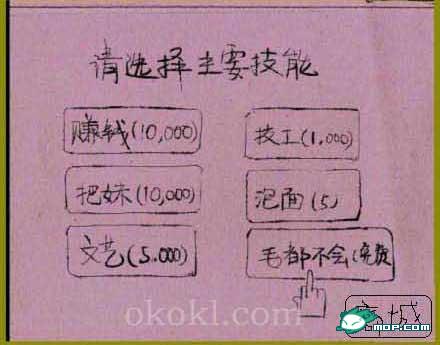 请选择主要技能
赚钱(10,000)
技工(1,000)
把妹(10,000)
泡面(5)
文艺(5.000)
毛都不会(免费
商城
okokl.com
mop.com